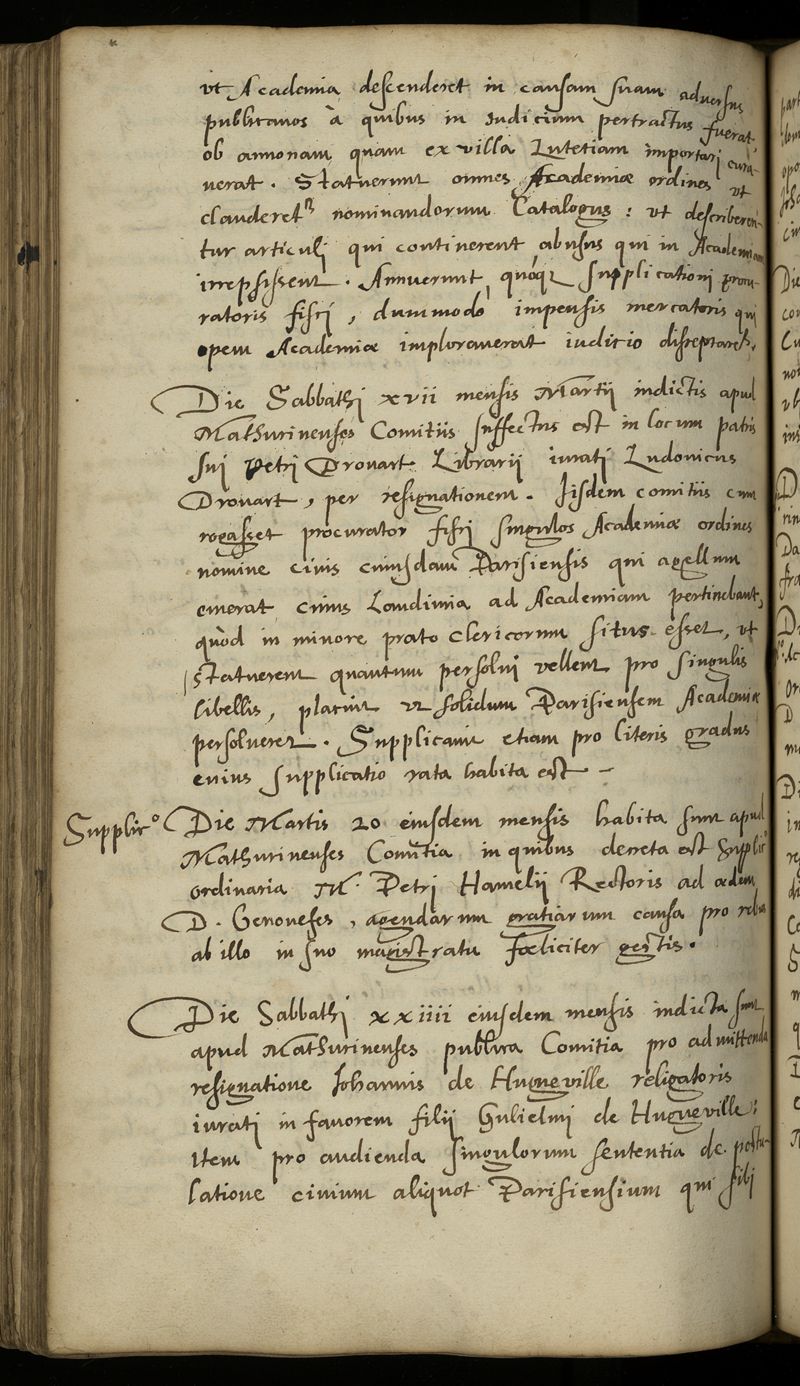 ut Academia descenderet in causam suam adversus
publicanos à quibus in iudicium pertractus fuerat
ob annonam quam ex villa Lutetiam importari cura-
verat. Statuerunt omnes Academiæ ordines ut
clauderet nominandorum Catalogus: ut describeren-
tur articuli qui continerent abusus qui in Academiam
irrepsissent. Annuerunt quoque supplicationi procu-
ratoris fisci, dummodo impensis mercatoris qui
opem Academiæ imploraverat iudicio disceptaret,
Die Sabbathi xvii mensis Martij indictis apud
Mathurinenses Comitiis suffectus est in locum patris
sui Petri Drouart Librarij iurati Ludovicus
Drouart, per resignationem. Iisdem comitiis cum
rogasset procurator fisci singulos Academiæ ordines
nomine civis cuiusdam Parisiensis qui agellum
emerat cuius Laudimia ad Academiam pertinebant,
quòd in minore prato clericorum situs esset, ut
statuerent quantum persolvi vellent pro singulis
libellis, placuit ut solidum Parisiensem Academiæ
persolveret. Supplicavit etiam pro literis gradus
cuius supplicatio rata habita est –
Supplic°
Die Martis 20 eiusdem mensis habita sunt apud
Mathurinenses Comitia in quibus decreta est Supplic°
ordinaria M. Petri Hamelij Rectoris ad ædem
D. Genovefes, agendarum gratiarum causa pro rebus
ab illo in suo magistratu fœliciter gestis.
Die Sabbathi xxiiii eiusdem mensis indicta sunt
apud Mathurinenses publica Comitia pro admittenda
resignatione Iohannis de Hugueville religatoris
iurati in favorem filij Gulielmi de Hugueville:
Item pro audienda singulorum sententia de postu-
latione civium aliquot Parisiensium qui sibi